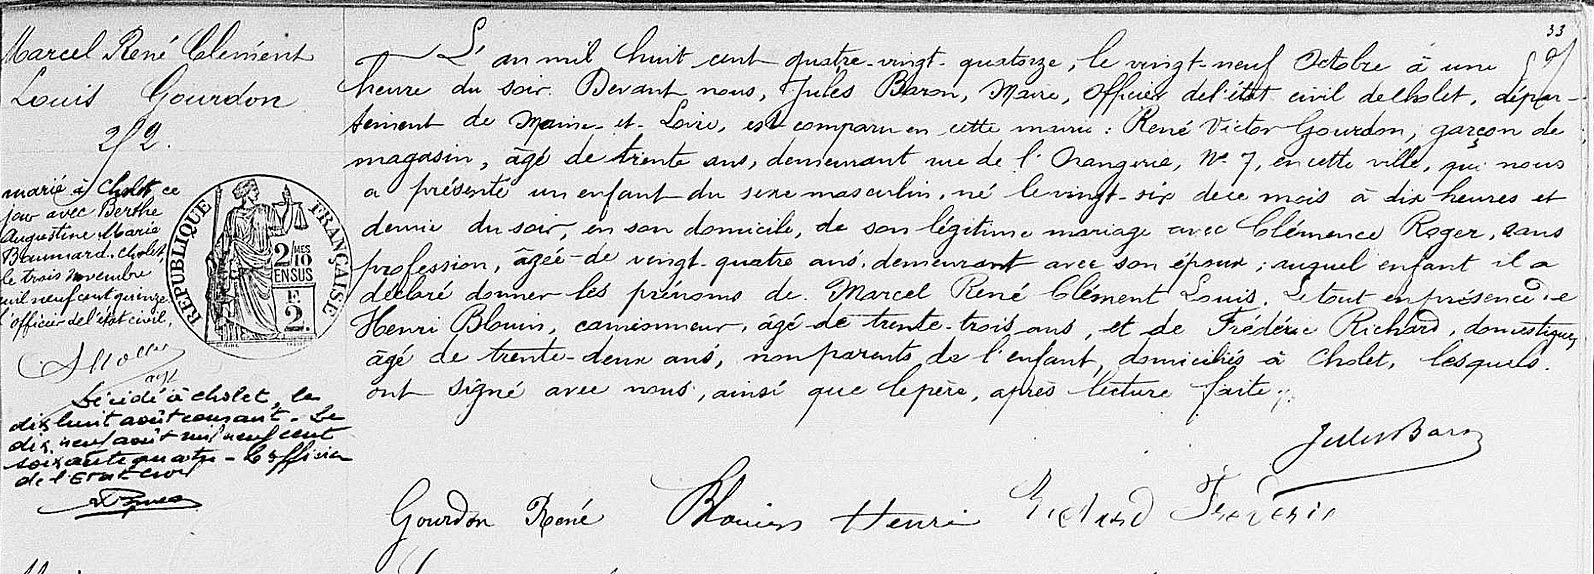 Marcel René Clément
Louis Gourdon
252.
marié à Cholet ce
jour avec Berthe
Augustine Marie
Baumard. Cholet,
le trois novembre
mil neuf cent quinze
l'officier de l'état civil,
Décidé à Cholet, le
dix huit août courant - Le
dix neuf août mil neuf cent
soixante quatre - L'officier
de l'Etat Civil
RÉPUBLIQUE FRANÇAISE
2/10 MES
EN SUS
E
2.
33
L'an mil huit cent quatre-vingt-quatorze, le vingt-neuf Octobre à une
heure du soir. Devant nous, Jules Baron, Maire, Officier de l'état civil de Cholet, dépar-
tement de Maine-et-Loire, est comparu en cette mairie : René Victor Gourdon, garçon de
magasin, âgé de trente ans, demeurant rue de l'Orangerie, No 7, en cette ville, qui nous
a présenté un enfant du sexe masculin, né le vingt-six de ce mois à dix heures et
demie du soir, en son domicile, de son légitime mariage avec Clémence Roger, sans
profession, âgée de vingt-quatre ans, demeurant avec son époux ; auquel enfant il a
déclaré donner les prénoms de Marcel René Clément Louis. Le tout en présence de
Henri Blouin, camionneur, âgé de trente-trois ans, et de Frédéric Richard, domestique,
âgé de trente-deux ans, non parents de l'enfant, domiciliés à Cholet, lesquels
ont signé avec nous, ainsi que le père, après lecture faite.
Jules Baron
Gourdon René Blouin Henri Richard Frederic